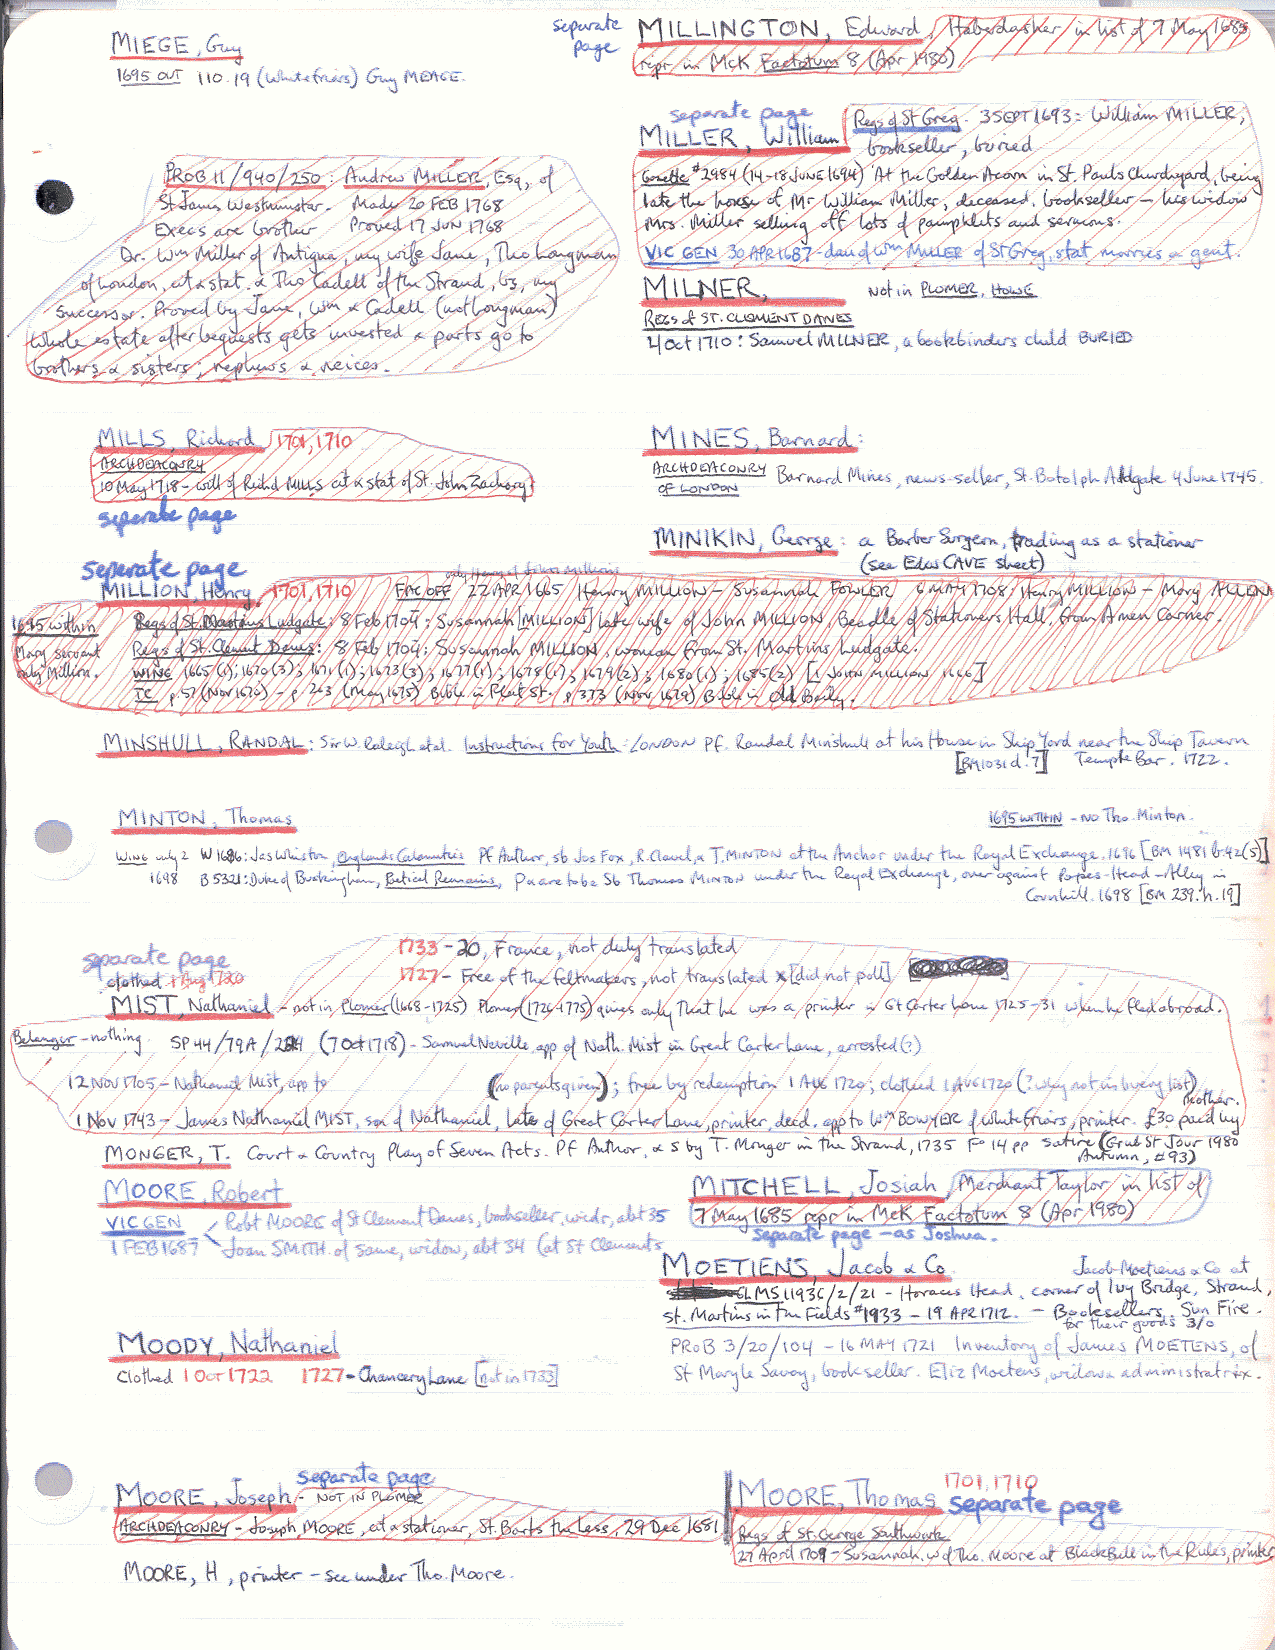 MIEGE, Guy
1695 OUT 110.19 (Whitefriars) Guy MEAGE.
separate page
MILLINGTON, Edward, Haberdasher in list of 7 May 1685
repr. in McK Factotum 8 (Apr 1980)
separate page
MILLER, William
Regs of St Greg. 3 SEPT 1693: William MILLER,
bookseller, buried
Gazette #2984 (14-18 JUNE 1694) At the Golden Acorn in St. Pauls Churchyard, being
late the house of Mr William Miller, deceased, bookseller — his widow
Mrs. Miller selling off lots of pamphlets and sermons.
VIC GEN 30 APR 1687 - dau of Wm MILLER of St Greg, stat, marries a gent.
PROB 11/940/250: Andrew MILLER, Esq, of
St James Westminster. Made 20 FEB 1768
Execs are brother Proved 17 JUN 1768
Dr. Wm Miller of Antigua, my wife Jane, Tho Longman
of London, cit & stat. & Tho Cadell of the Strand, bs, my
successor. Proved by Jane, Wm & Cadell (not Longman)
Whole estate after bequests gets invested & parts go to
brothers & sisters; nephews & neices.
MILNER, Not in PLOMER, HOWE
REGS of ST. CLEMENT DANES
4 Oct 1710: Samuel MILNER, a bookbinders child BURIED
MILLS, Richard 1701, 1710
ARCHDEACONRY
10 May 1718 - will of Richd MILLS cit & stat of St. John Zachary
separate page
MINES, Barnard:
ARCHDEACONRY OF LONDON Barnard Mines, news-seller, St. Botolph Aldgate 4 June 1745.
MINIKIN, George: a Barber Surgeon, trading as a stationer
(see Edw CAVE sheet)
separate page
MILLION, Henry, 1701, 1710 FAC OFF 22 APR 1665 Henry MILLION - Susannah FOWLER 6 MAY 1708: Henry MILLION - Mary ALLEN
1695 within Regs of St. Martins Ludgate: 8 Feb 1704: Susannah [MILLION] late wife of John MILLION, Beadle of Stationers Hall, from Amen Corner.
Mary servant Regs of St. Clement Danes: 8 Feb 1704: Susannah MILLION, woman from St. Martins Ludgate.
only Million. WING 1665 (1); 1670 (3); 1671 (1); 1673 (3); 1677 (1); 1678 (1); 1679 (2); 1680 (1); 1685 (2) [1 JOHN MILLION 1666]
TC p.57 (Nov 1670) - p 203 (May 1675) Bible in Fleet St. p 373 (Nov 1679) Bible in Old Baily.
MINSHULL, RANDAL: Sir W. Raleigh et al. Instructions for Youth: LONDON Pf. Randal Minshull at his House in Ship Yard near the Ship Tavern
[BM 1031 d.7] Temple Bar. 1722.
MINTON, Thomas 1695 WITHIN - NO Tho. Minton.
WING only 2 W 1686: Jas Whiston, Englands Calamities Pf Author, sb Jos Fox, R. Clavel, & T. MINTON at the Anchor under the Royal Exchange. 1696 [BM 1481 b.42(5)]
1698 B 5321: Duke of Buckingham, Poetical Remains, Pa are to be Sb Thomas MINTON under the Royal Exchange, over against Popes-Head-Alley in
Cornhill. 1698 [BM 239.h.19]
separate page 1733 - 20, France, not duly translated
clothed 1 Aug 1720 1727 - Free of the feltmakers, not translated x [did not poll]
MIST, Nathaniel - not in Plomer (1668-1725) Plomer (1726-1775) gives only that he was a printer in Gt Carter Lane 1725-31 when he fled abroad.
Belanger - nothing. SP 44/79A/ (7 Oct 1718) - Samuel Neville, app of Nath. Mist in Great Carter Lane, arrested (?)
12 NOV 1705 - Nathaniel Mist, app to (no parents given); free by redemption 1 AUG 1720; clothed 1 AUG 1720 (? why not in livery list)
mother.
1 Nov 1743 - James Nathaniel MIST, son of Nathaniel, late of Great Carter Lane, printer, decd, app to Wm BOWYER of White Friars, printer. £30 paid by
MONGER, T. Court & Country Play of Seven Acts. Pf Author, & s by T. Monger in the Strand, 1735 Fo 14 pp satire (Grub St Jour 1980
Autumn, #93)
MOORE, Robert
VIC GEN Robt MOORE of St Clement Danes, bookseller, widr, abt 35
1 FEB 1687 Joan SMITH of same, widow, abt 34 (at St Clements
MITCHELL, Josiah, Merchant Taylor in list of
7 May 1685 repr in McK Factotum 8 (Apr 1980)
separate page - as Joshua.
MOETIENS, Jacob & Co. Jacob Moetiens & Co at
GLMS 11936/2/21 - Horaces Head, corner of Ivy Bridge, Strand,
St. Martins in the Fields #1933 - 19 APR 1712. - Booksellers. Sun Fire.
for their goods 3/0
PROB 3/20/104 - 16 MAY 1721 Inventory of James MOETENS, of
St Mary le Savoy, bookseller. Eliz Moetens, widow & administratrix.
MOODY, Nathaniel
Clothed 1 Oct 1722 1727 - Chancery Lane [not in 1733]
separate page
MOORE, Joseph - NOT IN PLOMER
ARCHDEACONRY - Joseph MOORE, cit & stationer, St. Barts the Less, 29 Dec 1681
MOORE, H, printer - see under Tho. Moore.
MOORE, Thomas 1701, 1710
separate page
Regs of St. George Southwark
27 April 1709 - Susannah, w of Tho. Moore at Black Bell in the Rules, printer